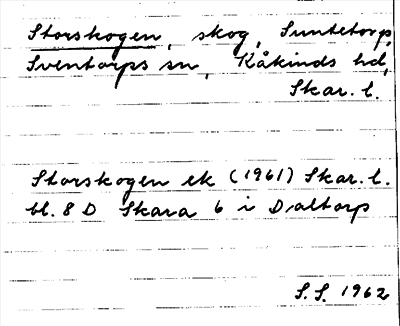 Storskogen, skog, Suntetorp,
Sventorps sn, Kåkinds hd,
Skar. l.
Storskogen ek (1961) Skar. l.
bl. 8 D Skara 6 i Daltorp
S. S. 1962